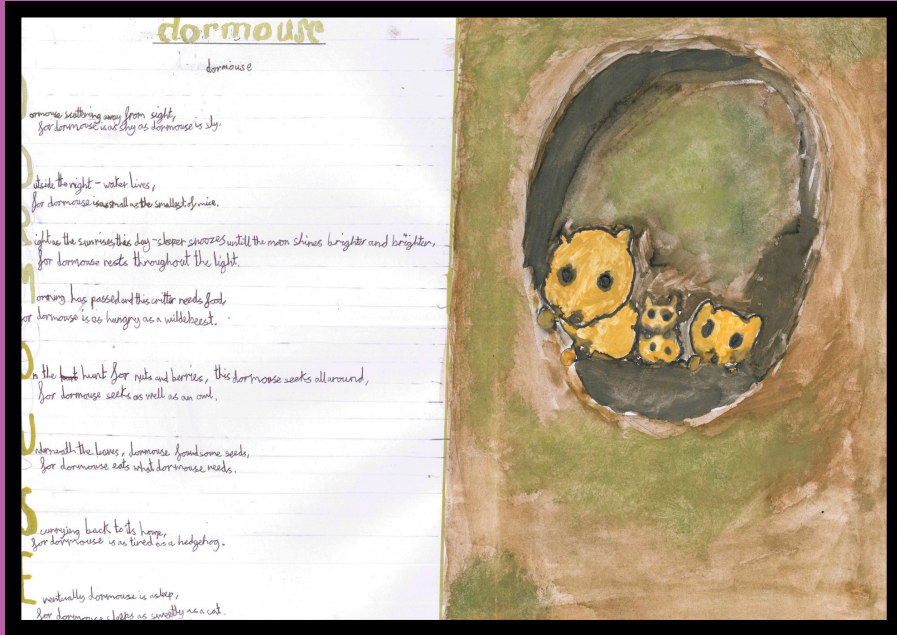 dormouse
dormouse
ormouse scattering away from sight,
for dormouse is as shy as dormouse is sly.
utside the night - waker lives,
for dormouse is as small as the smallest of mice.
ight as the sun rises this day - sleeper snoozes untill the moon shines brighter and brighter,
for dormouse rests throughout the light.
orning has passed and this critter needs food,
or dormouse is as hungry as a wildebeest.
n the hunt for nuts and berries, this dormouse seeks all around,
for dormouse seeks as well as an owl.
nderneath the leaves, dormouse found some seeds,
for dormouse eats what dormouse needs.
currying back to its home,
for dormouse is as tired as a hedgehog.
ventually dormouse is asleep,
for dormouse sleeps as sweetly as a cat.